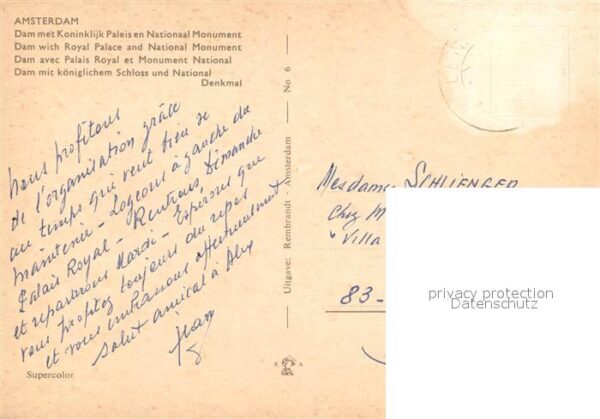 AMSTERDAM
Dam met Koninklijk Paleis en Nationaal Monument
Dam with Royal Palace and National Monument
Dam avec Palais Royal et Monument National
Dam mit königlichem Schloss und National
Denkmal
Nous profitons
de l'organisation grâce
au temps qui veut bien se
maintenir - Logeons à gauche du
Palais Royal - Rentrons Dimanche
et repartons Mardi - Espérons que
vous profitez toujours du repos
et vous embrassons affectueusement
salut amical à Alex
Jean
Supercolor
Uitgave: Rembrandt - Amsterdam
No 6
R A
Mesdames SCHLIENGER
Chez M
"Villa
83-
privacy protection
Datenschutz